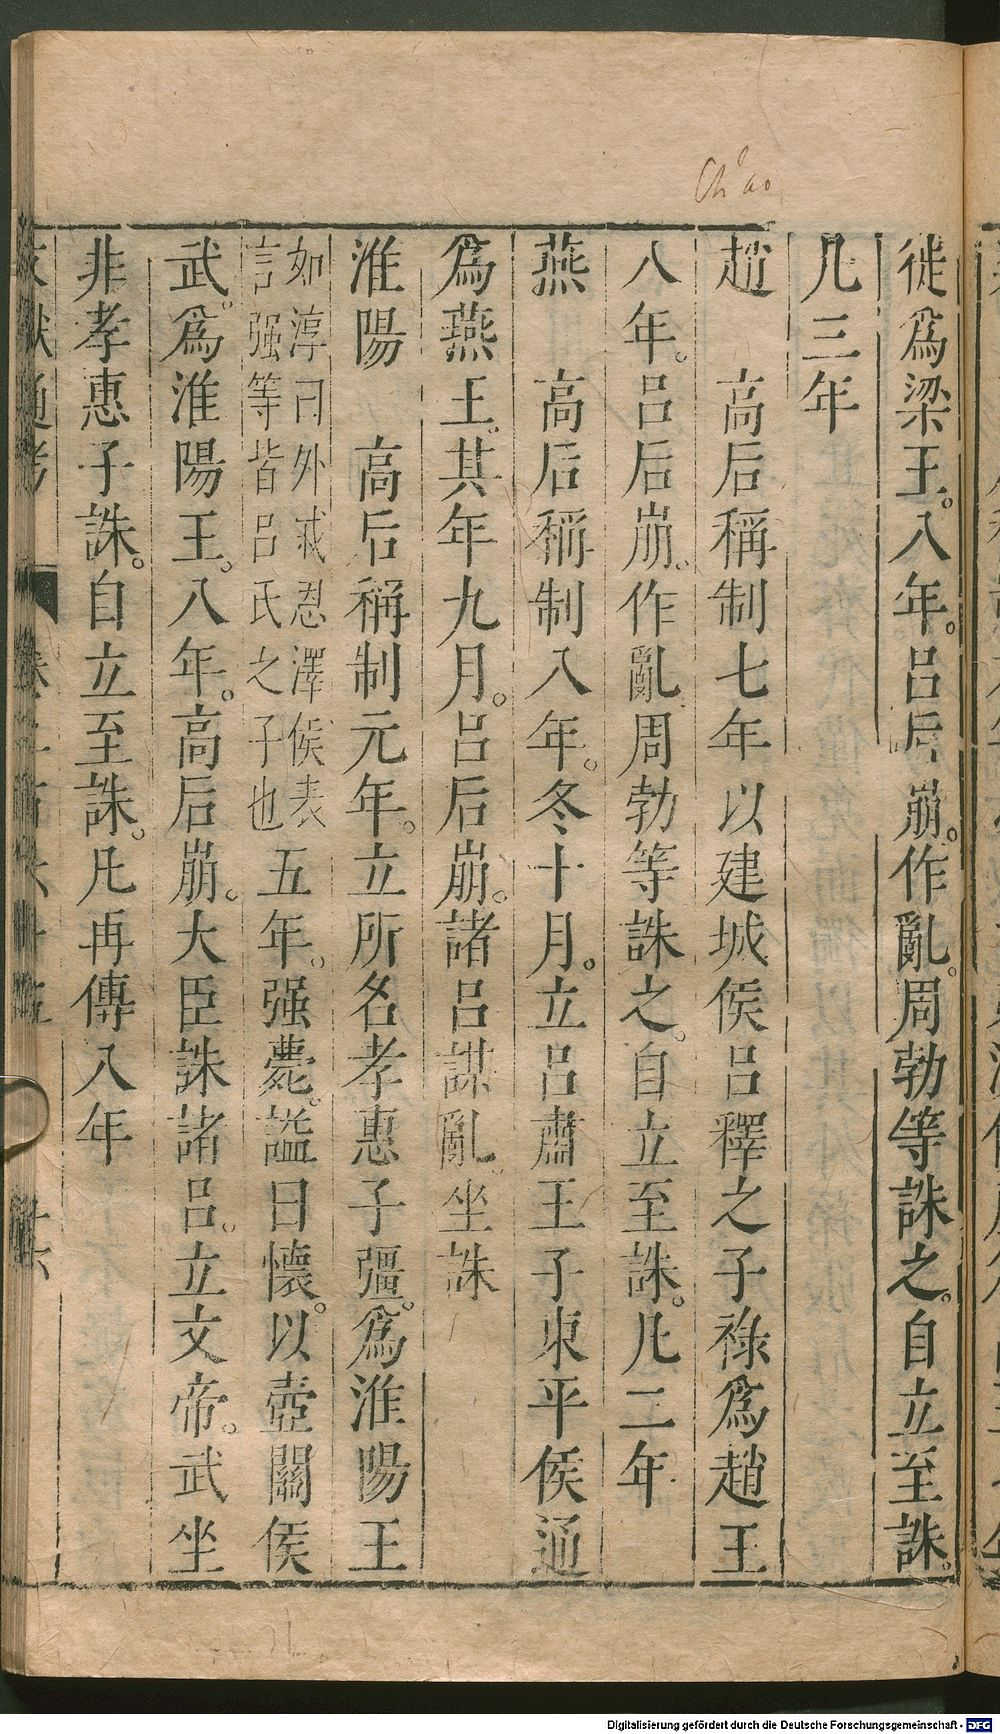 Ch'ao
徙爲梁王。八年。呂后崩。作亂。周勃等誅之。自立至誅。
凡三年
趙　高后稱制七年以建城侯呂釋之子祿爲趙王
八年。呂后崩。作亂周勃等誅之。自立至誅。凡二年
燕　高后稱制八年。冬十月。立呂肅王子東平侯通
爲燕王。其年九月。呂后崩。諸呂謀亂。坐誅
淮陽　高后稱制元年。立所名孝惠子彊。爲淮陽王
如淳曰外戚恩澤侯表
言强等皆呂氏之子也
五年。强薨。諡曰懷。以壺關侯
武。爲淮陽王。八年。高后崩。大臣誅諸呂。立文帝。武坐
非孝惠子誅。自立至誅。凡再傳八年
文獻通考
Digitalisierung gefördert durch die Deutsche Forschungsgemeinschaft - DFG